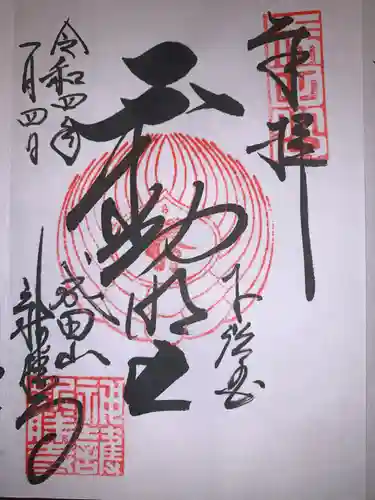 奉拝
下総国
不動明王
成田山
新勝寺
令和四年
一月四日
神護
新勝寺